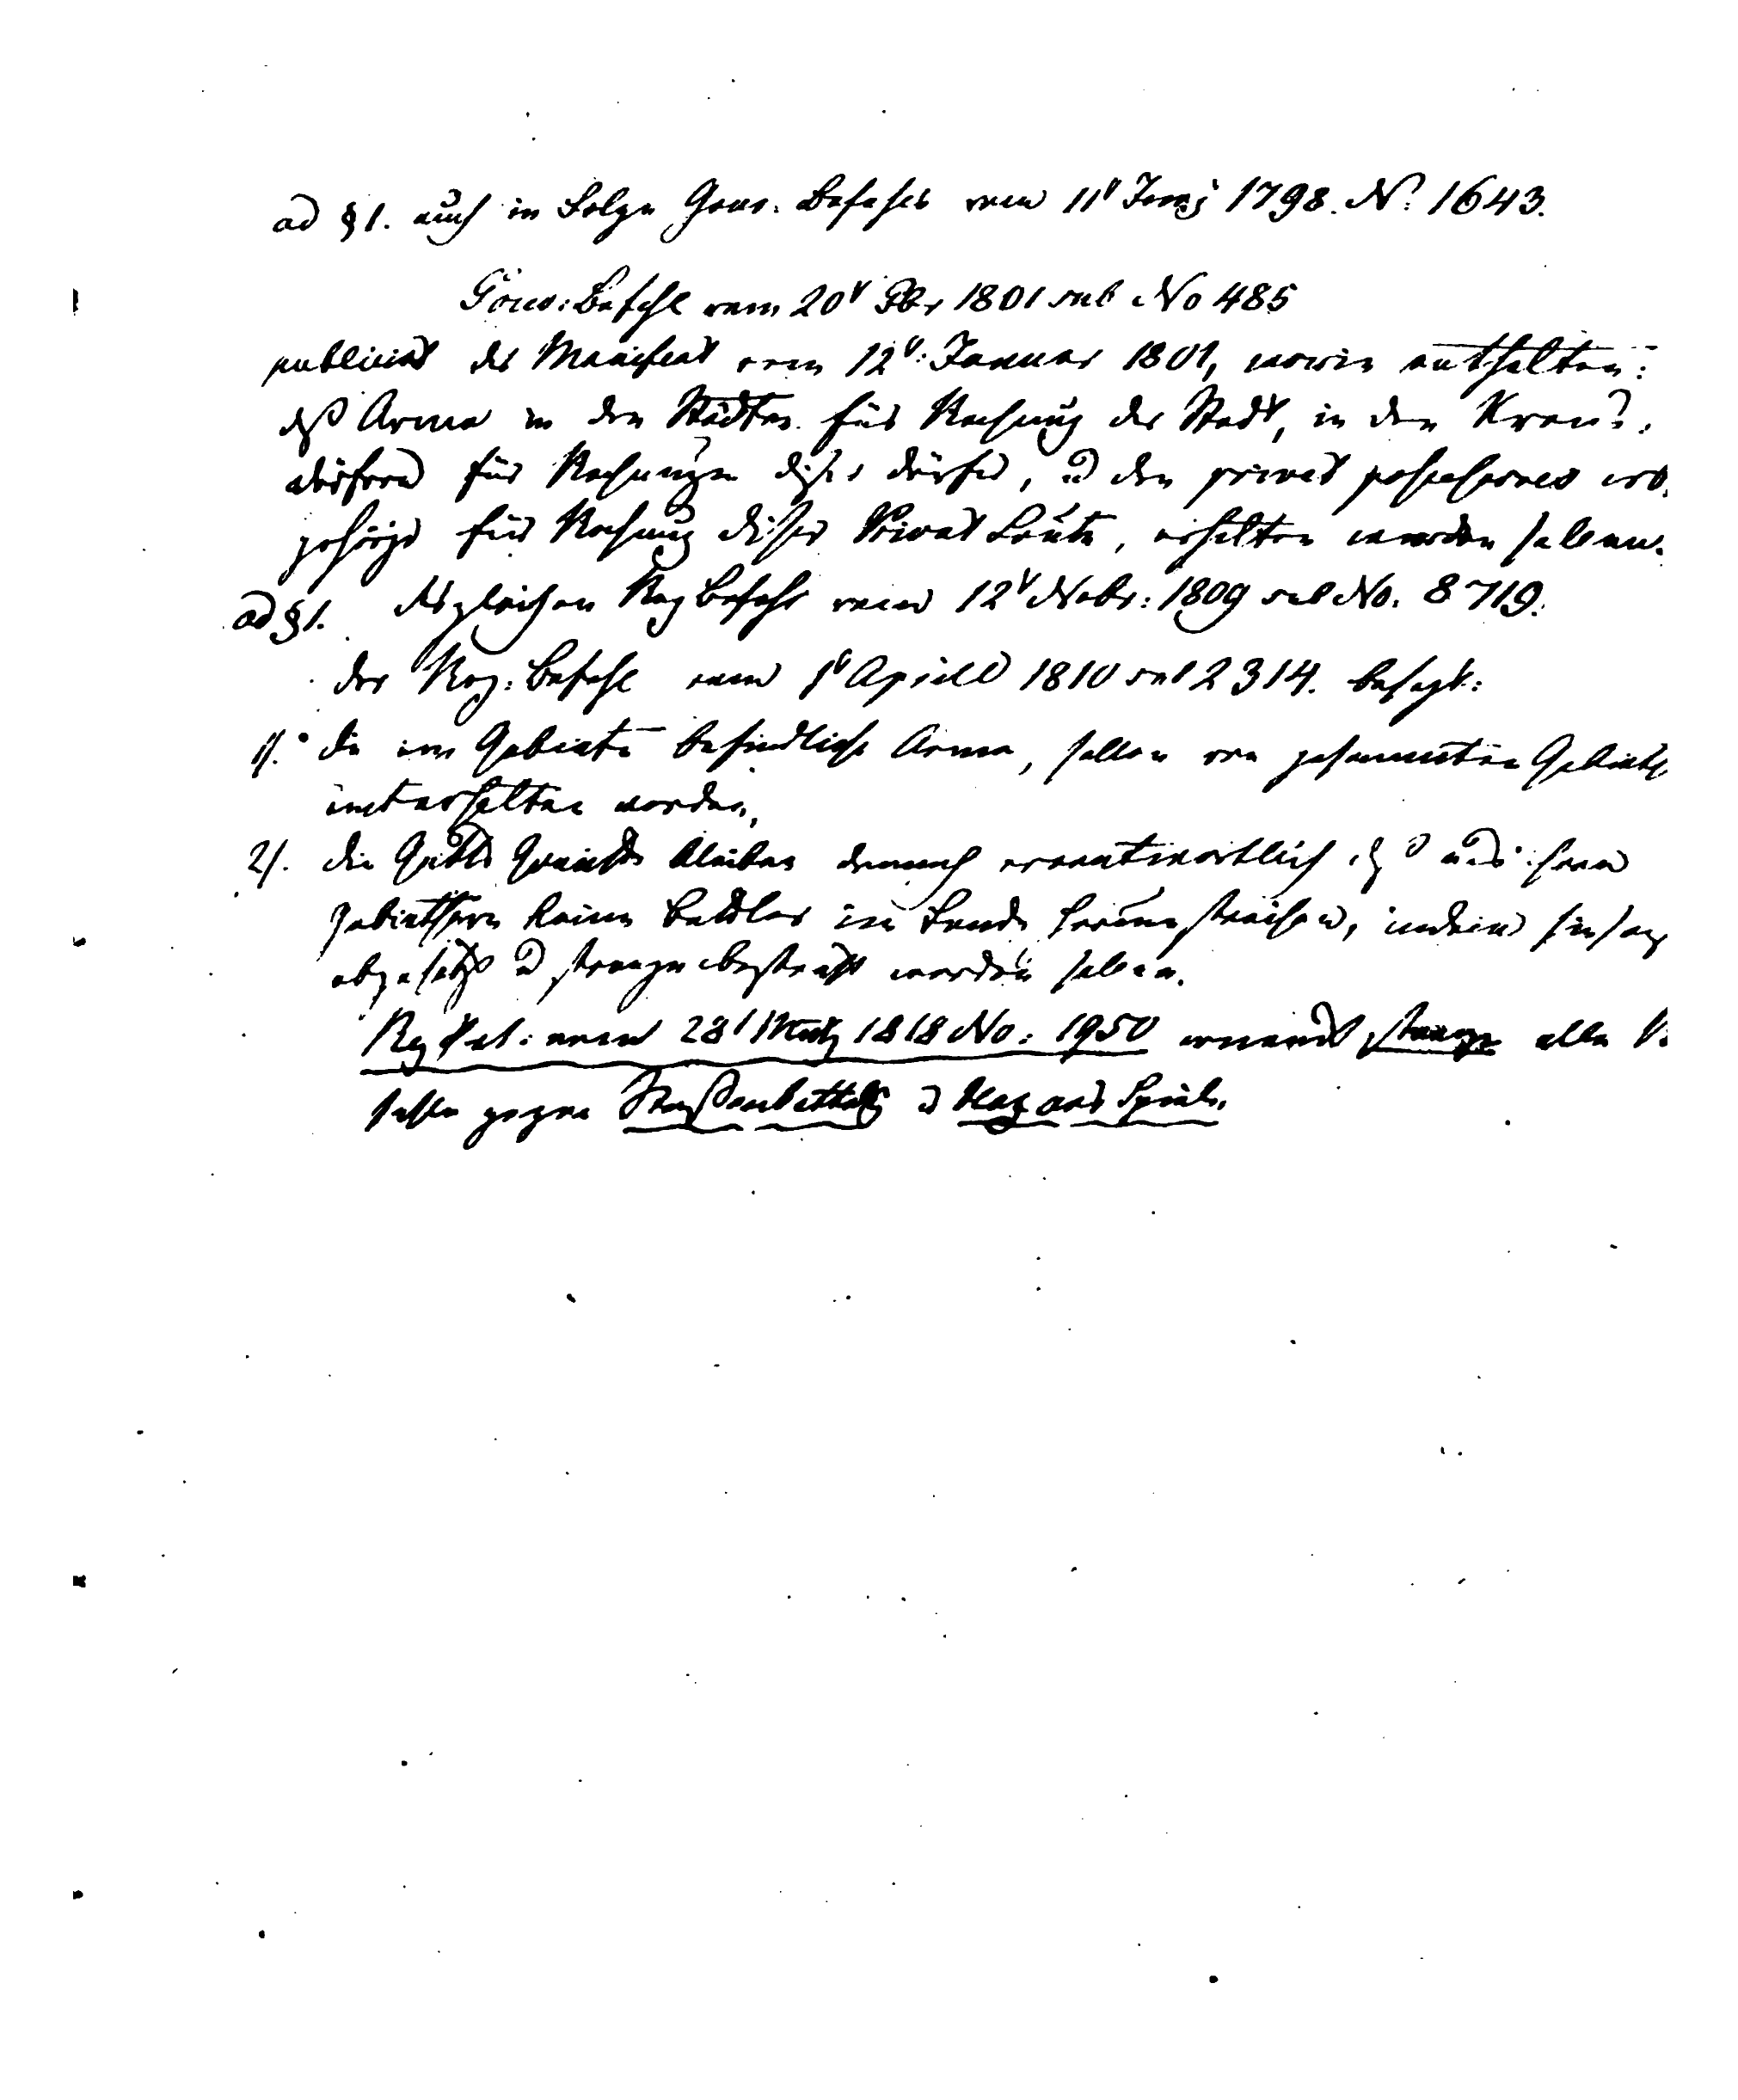 ad §1. auch in Folge Gouv. Befehls vom 11t Junij 1798. No 1643.
Gouv: Befehl vom 20t Febr 1801 sub No 485
publicirt des Manifest vom 12t: Januar 1801, worin enthalten:
daß Arme in den Städten für Rechnung der Stadt, in den Krons
dörfern für Rechnungen dieser Dörfer, u den privat possessores
gehörige für Rechnung dieser Privat Leute, erhalten werden sollen.
ad §1. desgleichen Reg Befehl vom 12t Nobr: 1809 sub No. 8719.
der Reg: Befehl vom 1t Aprill 1810 sub 2314. besagt:
1/. die im Gebiete befindliche Arme, sollen von gesammten Gebiete
unterhalten werden,
2/. die Gebts Gerichte bleiben dennoch verantwortlich daß aus ihren
Gebiethern keine Bettler im Lande herumstreichen, indem sie sonst
abgesetzt u strenge bestraft werden sollen.
Reg Pat: vom 28t Martz 1818 No: 1950 strenge alle
gegen Straßenbetteley u Hazard Spiele.